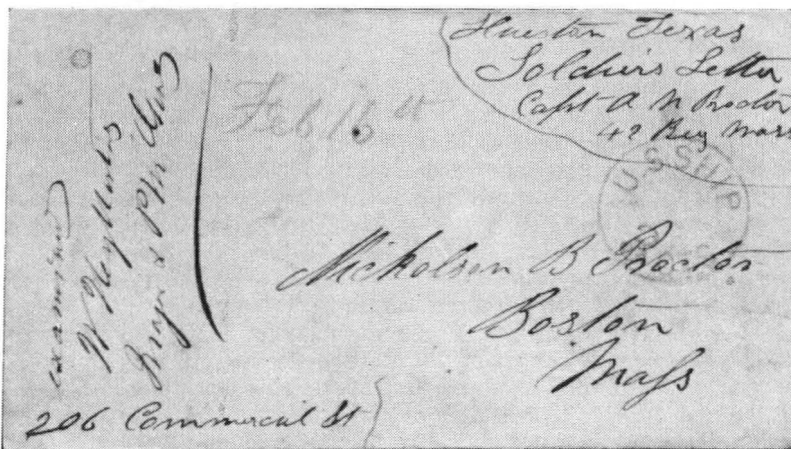 Hueston Texas
Soldiers Letter
Capt A N Proctor
42 Reg Mass
Feb 16th
U S SHIP
Nickolson B Proctor
Boston
Mass
206 Commercial St
Examined
W
Major &